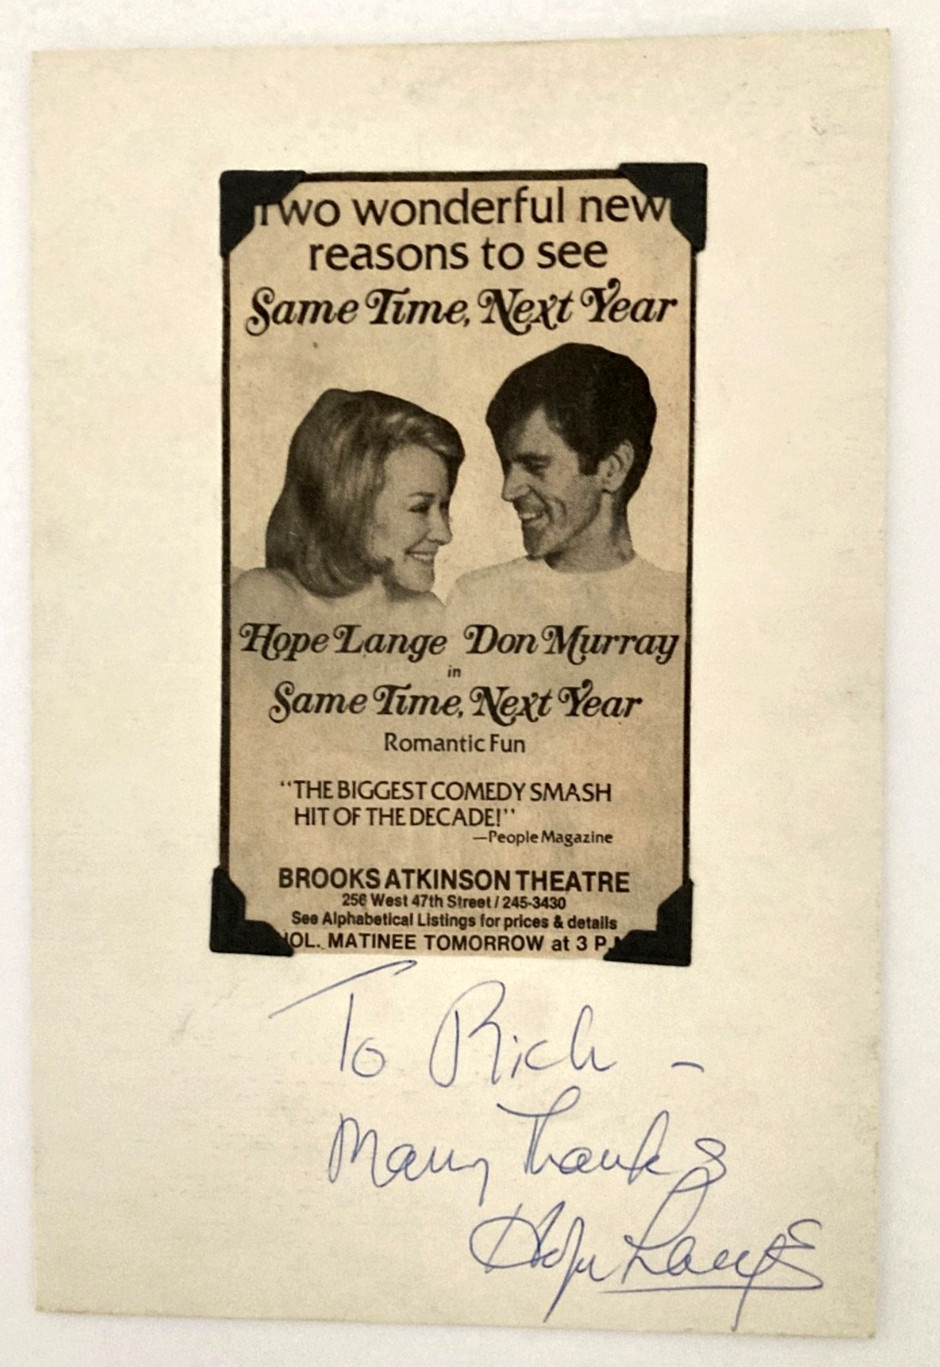 Two wonderful new
reasons to see
Same Time, Next Year
Hope Lange Don Murray
in
Same Time, Next Year
Romantic Fun
"THE BIGGEST COMEDY SMASH
HIT OF THE DECADE!"
—People Magazine
BROOKS ATKINSON THEATRE
256 West 47th Street / 245-3430
See Alphabetical Listings for prices & details
HOL. MATINEE TOMORROW at 3 P.M
To Rich -
Many Thanks
Hope Lange